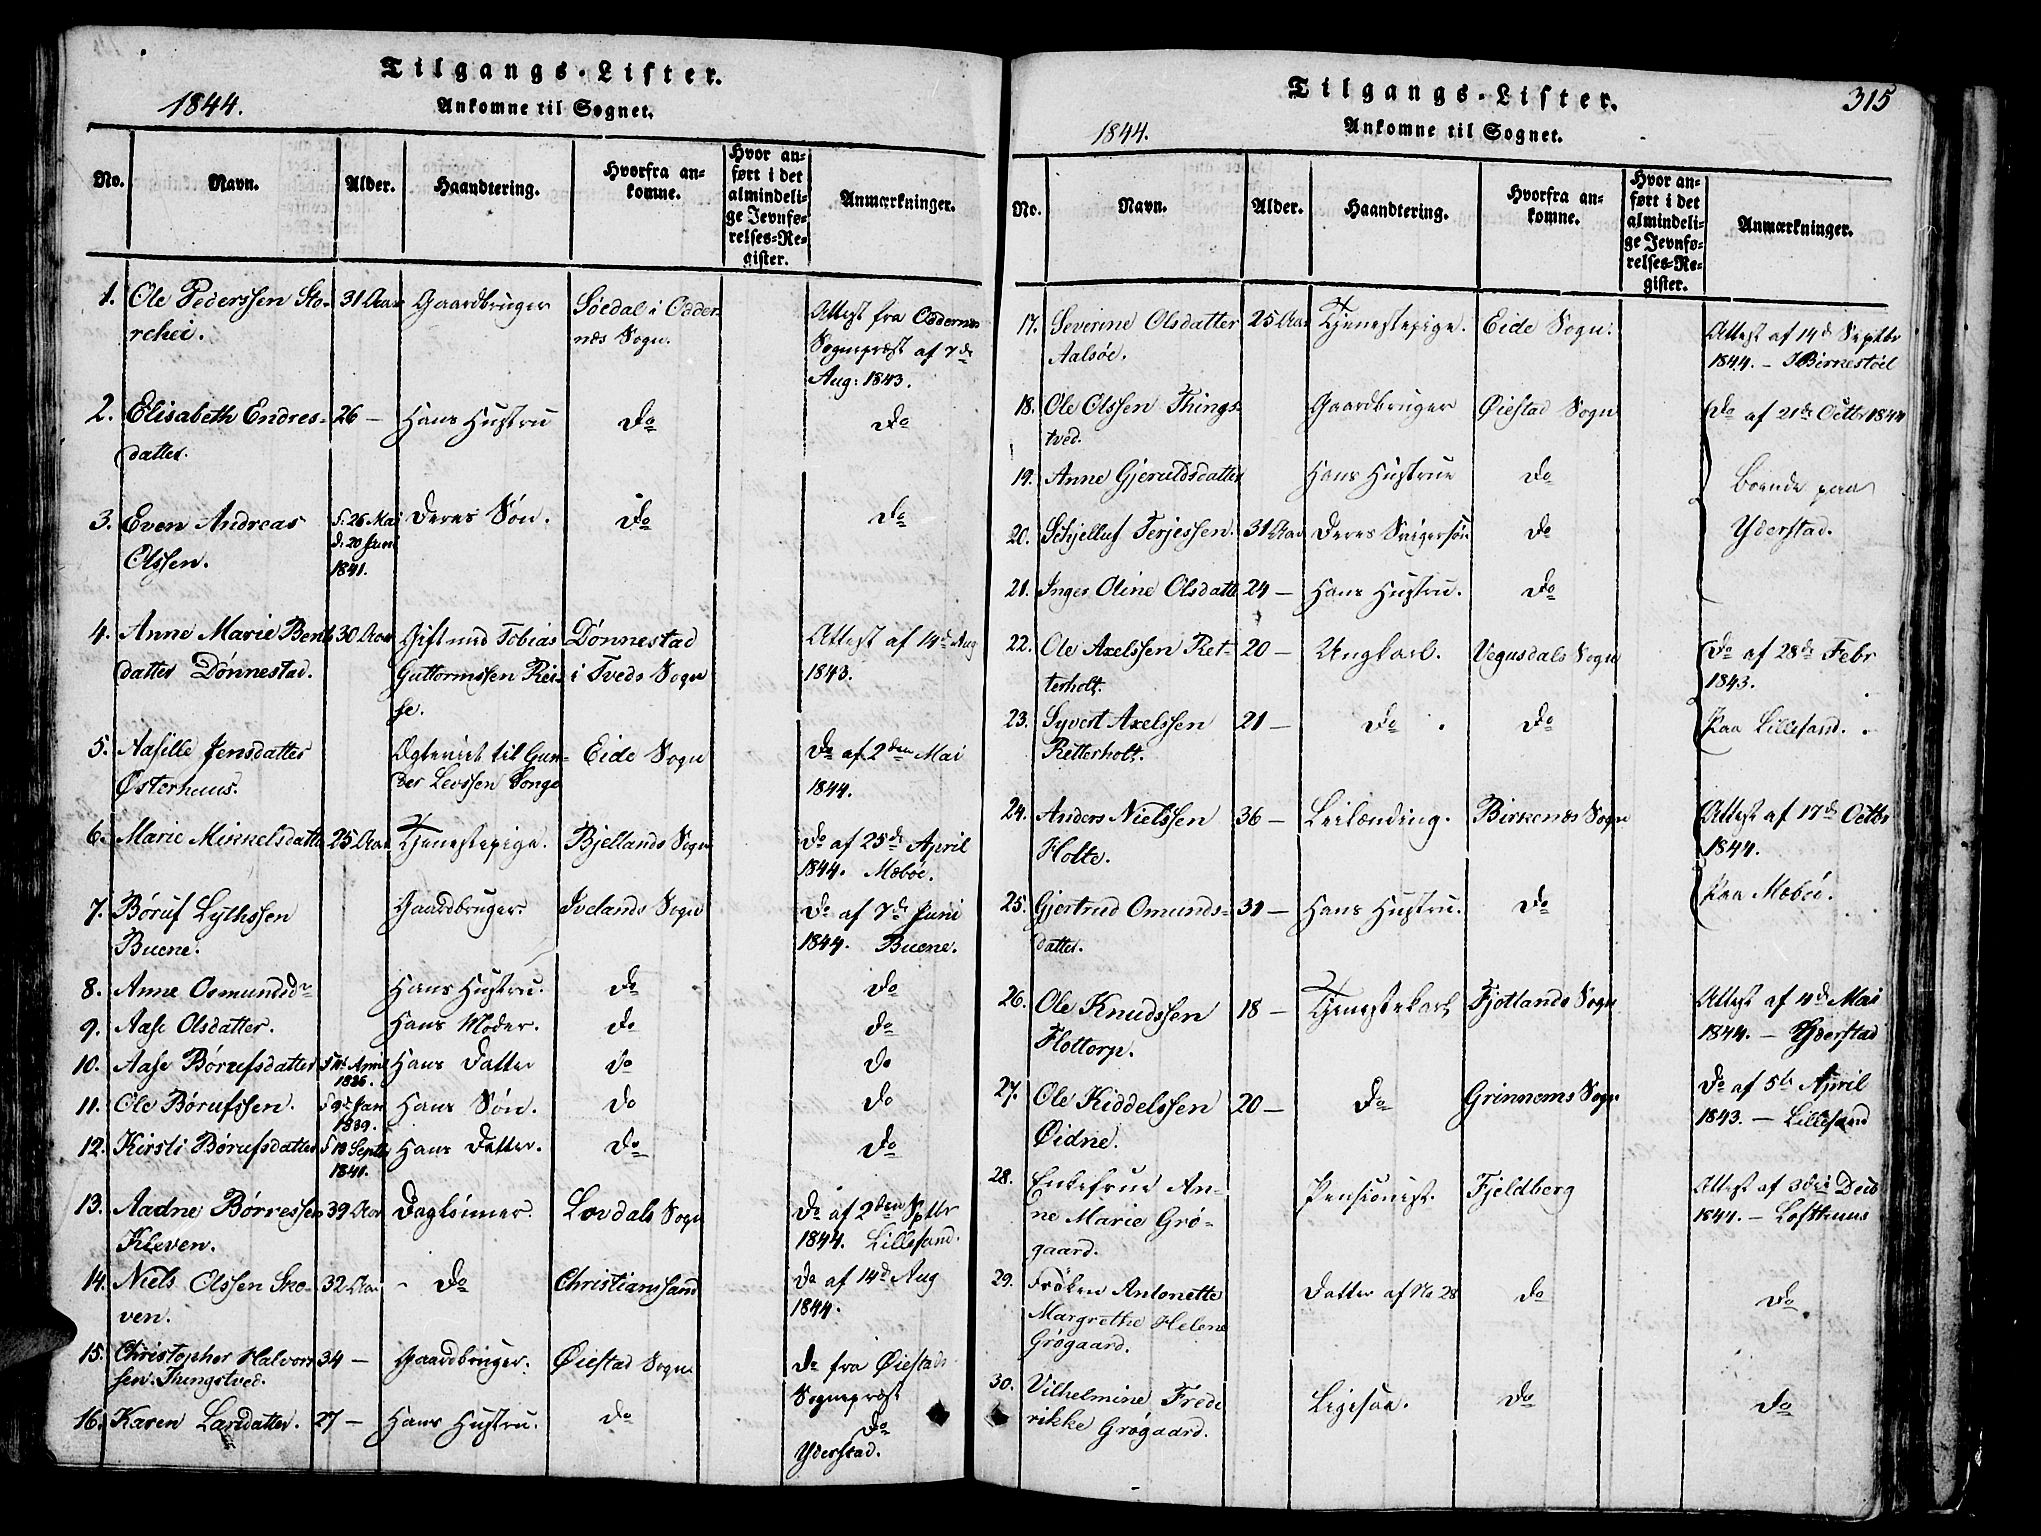 Tilgangs-Lister.
1844.
Ankomne til Sognet.
No. Navn. Alder. Haandtering. Hvorfra ankomne. Hvor anført i det almindelige Jevnførelses-Register. Anmærkninger.
1. Ole Pederssen Sto- 31 Aar Gaardbruger Söedal i Odder- Attest fra Oddernes
rehei. næs Sogn. Sognepræst af 7de
Aug: 1843.
2. Elisabeth Endres- 26 — Hans Hustru Do Do
datter.
3. Even Andreas f. 26 Mai Deres Søn. Do Do
Olssen. d. 20 Juni
1841.
4. Anne Marie Bent 30 Aar Gift med Tobias Dønnestad Attest af 14de Aug
datter Dønnestad. Guttormssen Rei- i Tveds Sogn 1843.
se.
5. Aasille Jensdatter Egteviet til Gun- Eide Sogn Do af 2den Mai
Østerhuus. der Levssen Songe 1844.
6. Marie Mikkelsdatter 25 Aar Tjenestepige. Bjellands Sogn Do af 25de April
1844. Mæbøe.
7. Børuf Lythssen Gaardbruger. Ivelands Sogn Do af 7de Juni
Buene. 1844. Buene.
8. Anne Osmundsdr Hans Hustru. Do Do
9. Aase Olsdatter. Hans Moder. Do Do
10. Aase Børufsdatter April Hans Datter Do Do
1836.
11. Ole Børufssen. f 9de Jan Hans Søn. Do Do
1839.
12. Kirsti Børufsdatter f 10 Septb Hans Datter. Do Do
1841.
13. Aadne Børressen 39 Aar Dagleiner. Lovdals Sogn Do af 2den Sptbr
Kleven. 1844. Lillesand.
14. Niels Olssen Sko- 32 Aar - Do Christianssand Do af 14de Aug
ven. 1844.
15. Christopher Halvor 34 — Gaardbruger. Øiestad Sogn Do fra Øiestads
sen Thingstved. Sognepræst
16. Karen Larsdatter. 27 — Hans Hustru. Do Do
Yderstad.
Tilgangs-Lister. 315
1844.
Ankomne til Sognet.
No. Navn. Alder. Haandtering. Hvorfra ankomne. Hvor anført i det almindelige Jevnførelses-Register. Anmærkninger.
17. Severine Olsdatter 25 Aar Tjenestepige. Eide Sogn. Attest af 14de Septbr
Aalsøe. 1844. — Birkestøl
18. Ole Olssen Things- Gaardbruger Øiestad Sogn Do af 21de Octbr 1844
tved.
19. Anne Gjeruldsdatter Hans Hustrue Do Boende paa
20. Schjelluf Terjessen. 31 Aar Deres Svigersøn. Do Yderstad.
21. Inger Oline Olsdatt 24 — Hans Hustru. Do
22. Ole Axelssen Ret- 20 — Ungkarl. Vegusdals Sogn Do af 28de Febr
terholt. 1843.
23. Syvert Axelssen 21 — Do Do Paa Lillesand.
Retterholt.
24. Anders Nielssen 36 — Leilænding. Birkenæs Sogn Attest af 17de Octbr
Holte. 1844.
25. Gjertrud Omunds- 31 — Hans Hustru. Do Paa Mæbøe.
datter.
26. Ole Knudssen 18 — Tjenestekarl Fjotlands Sogn Attest af 4de Mai
Flottorp. 1844. — Yderstad
27. Ole Kiddelssen 20 — Do Grinnems Sogn Do af 5te April
Øidne. 1843. — Lillesand
28. Enkefrue An- Pensionist. Fjeldberg Attest af 3die Decb
ne Marie Grø- 1844. — Lofthuus
gaard.
29. Frøken Antonette Datter af No 28 Do Do
Margrethe Helene
Grøgaard.
30. Vilhelmine Frede Ligesaa. Do Do
rikke Grøgaard.